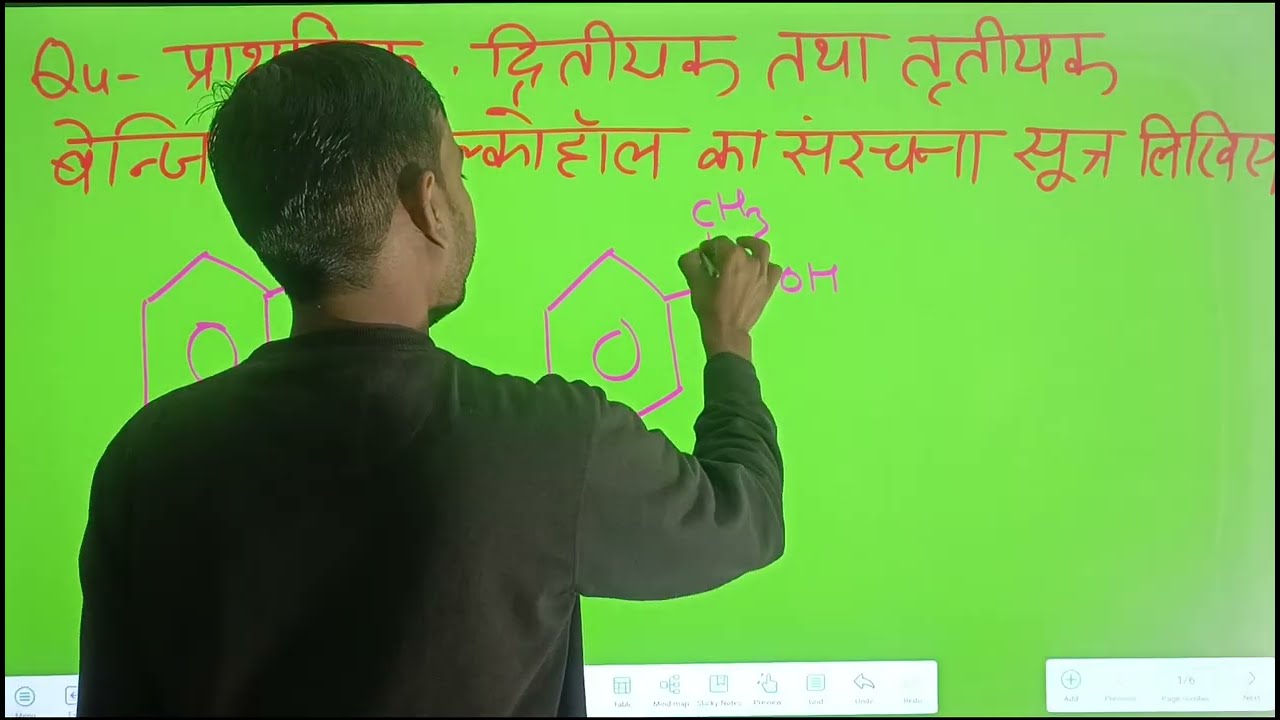 Qu- . द्वितीयक तथा तृतीयक
का संरचना सूत्र लिखिए
CH3
OH
Menu Table Mind map Sticky Notes Preview Grid Undo Redo Add Previous 1/6 Page number Next